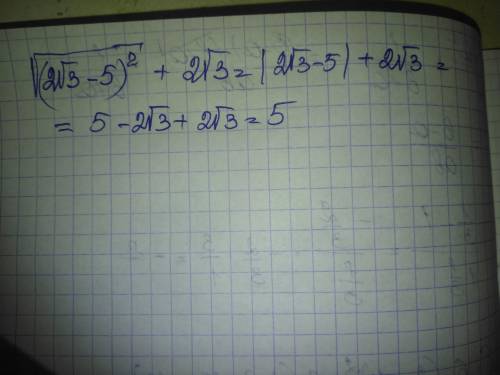 √(2√3 - 5)² + 2√3 = |2√3 - 5| + 2√3 =
= 5 - 2√3 + 2√3 = 5